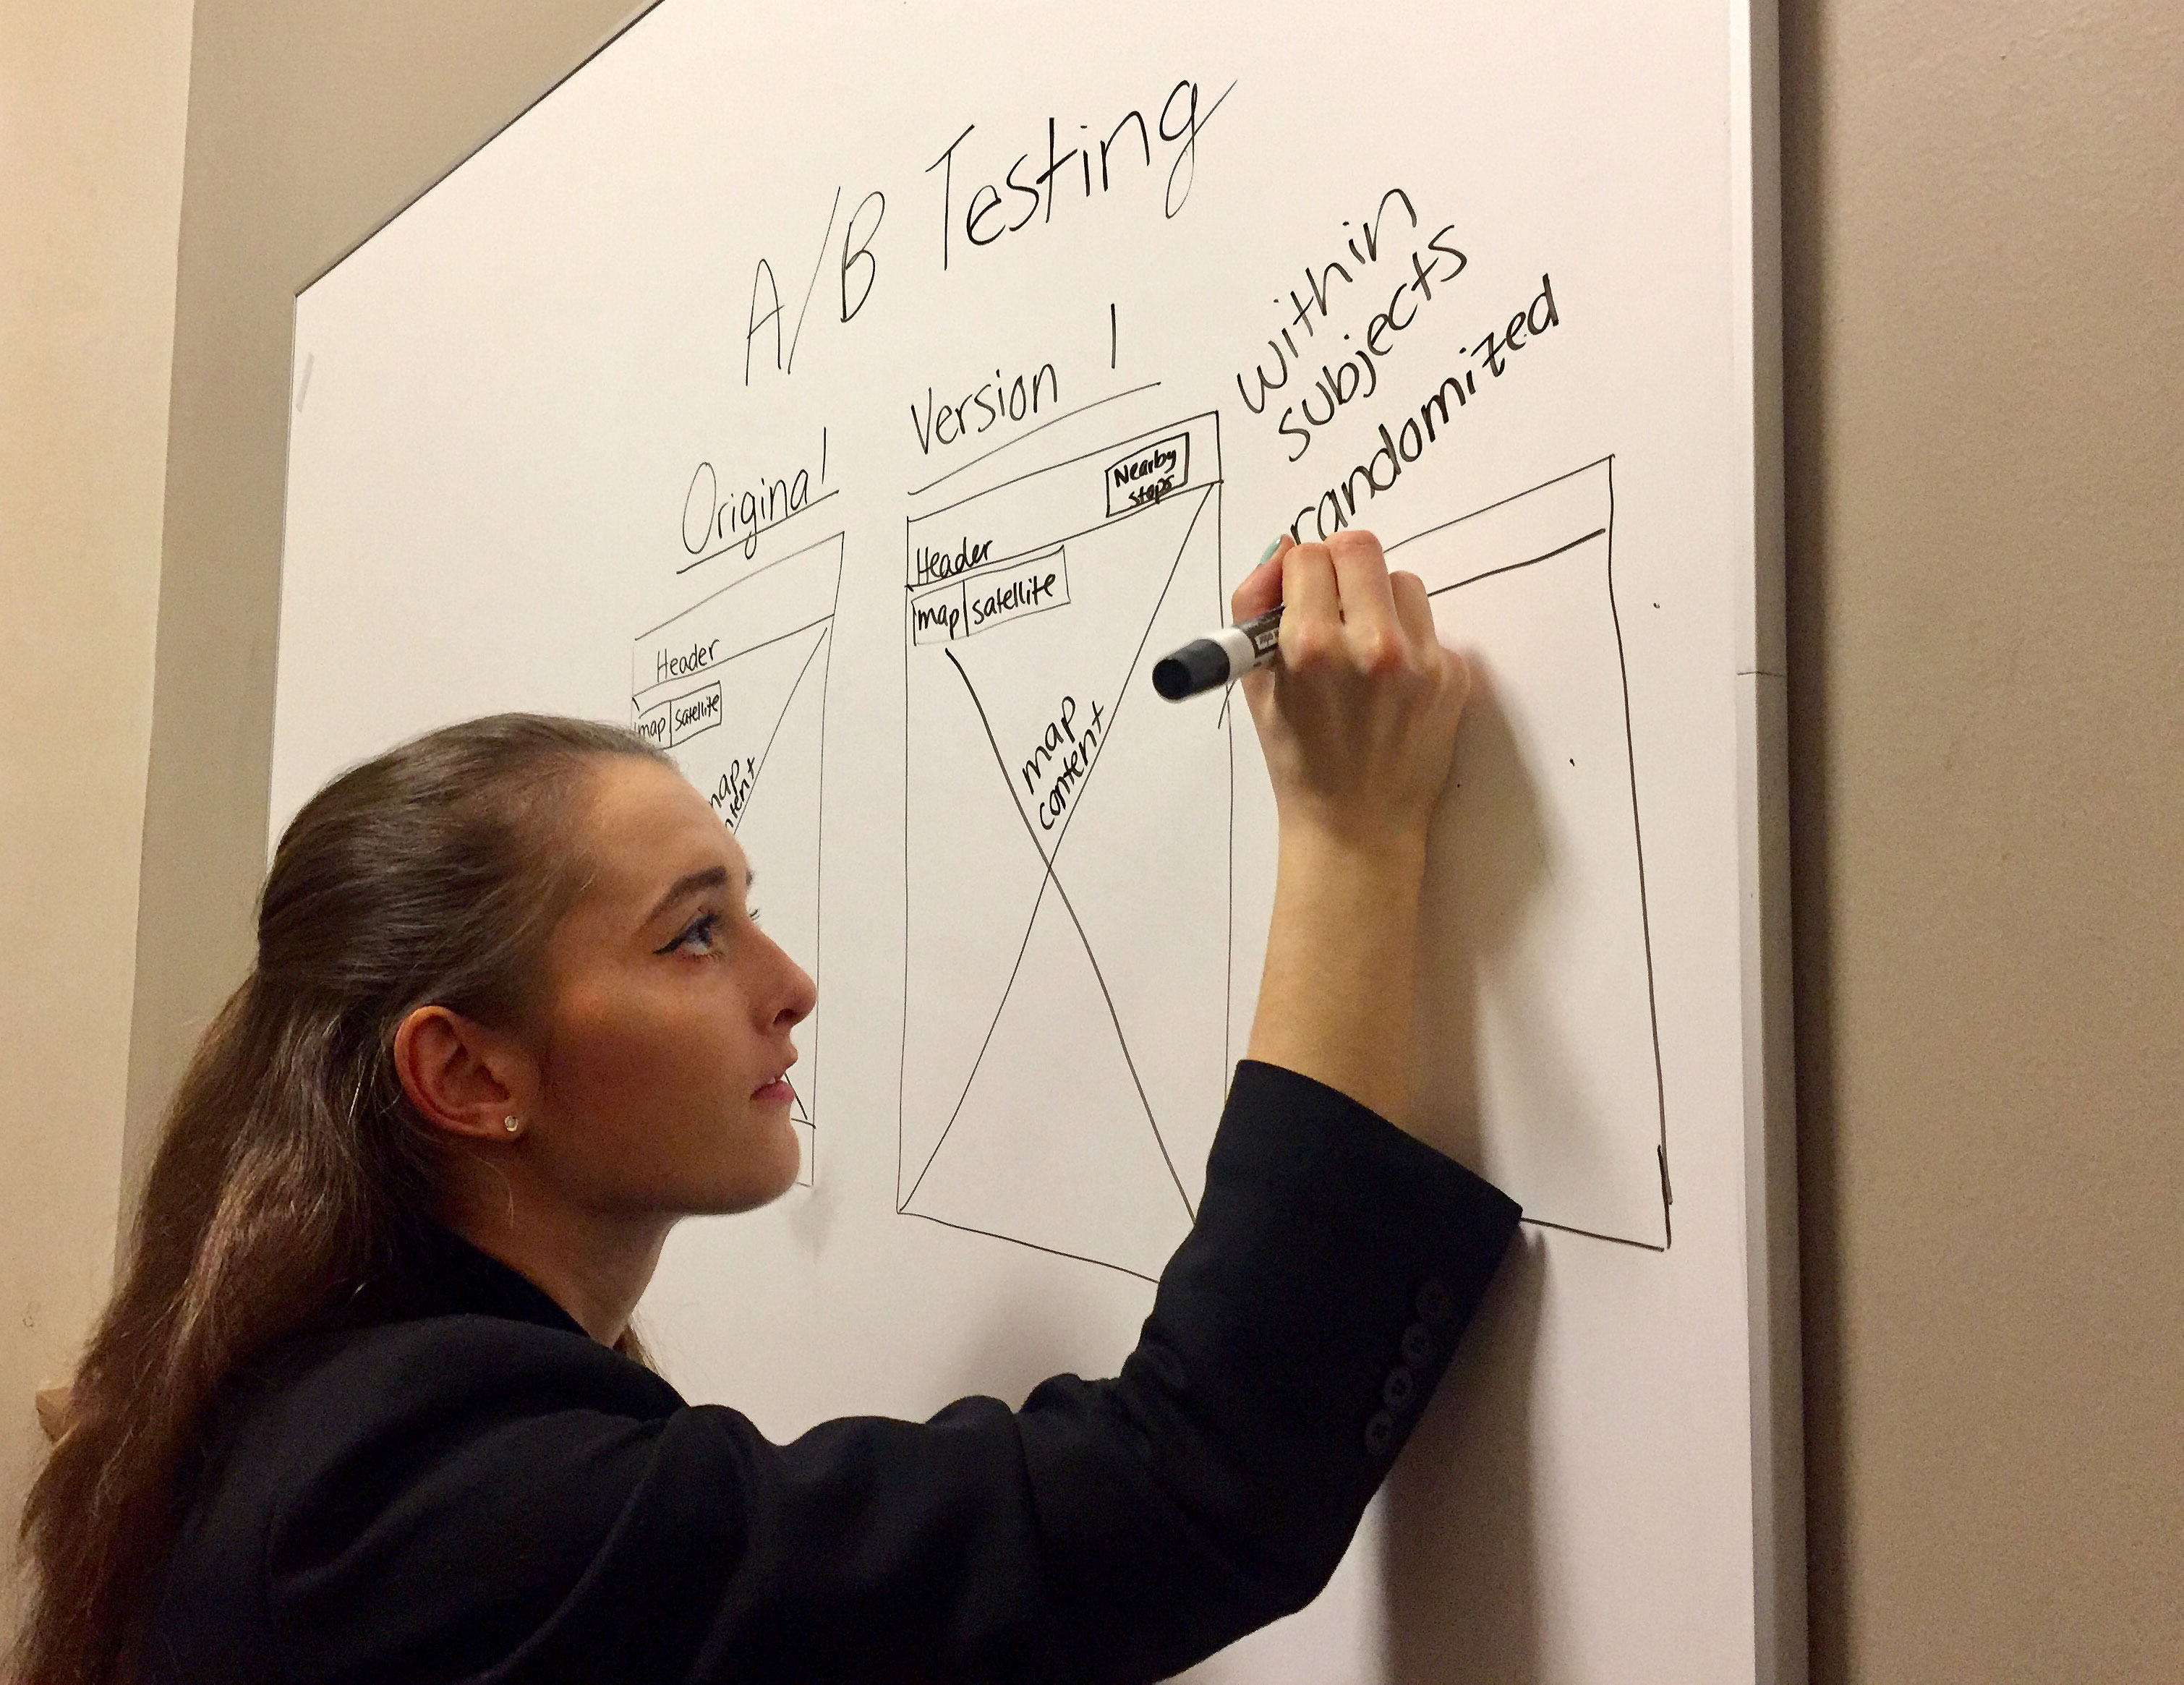 A/B Testing
Original
Header
map satellite
Version 1
Nearby
stops
Header
map satellite
map
content
within
subjects
randomized